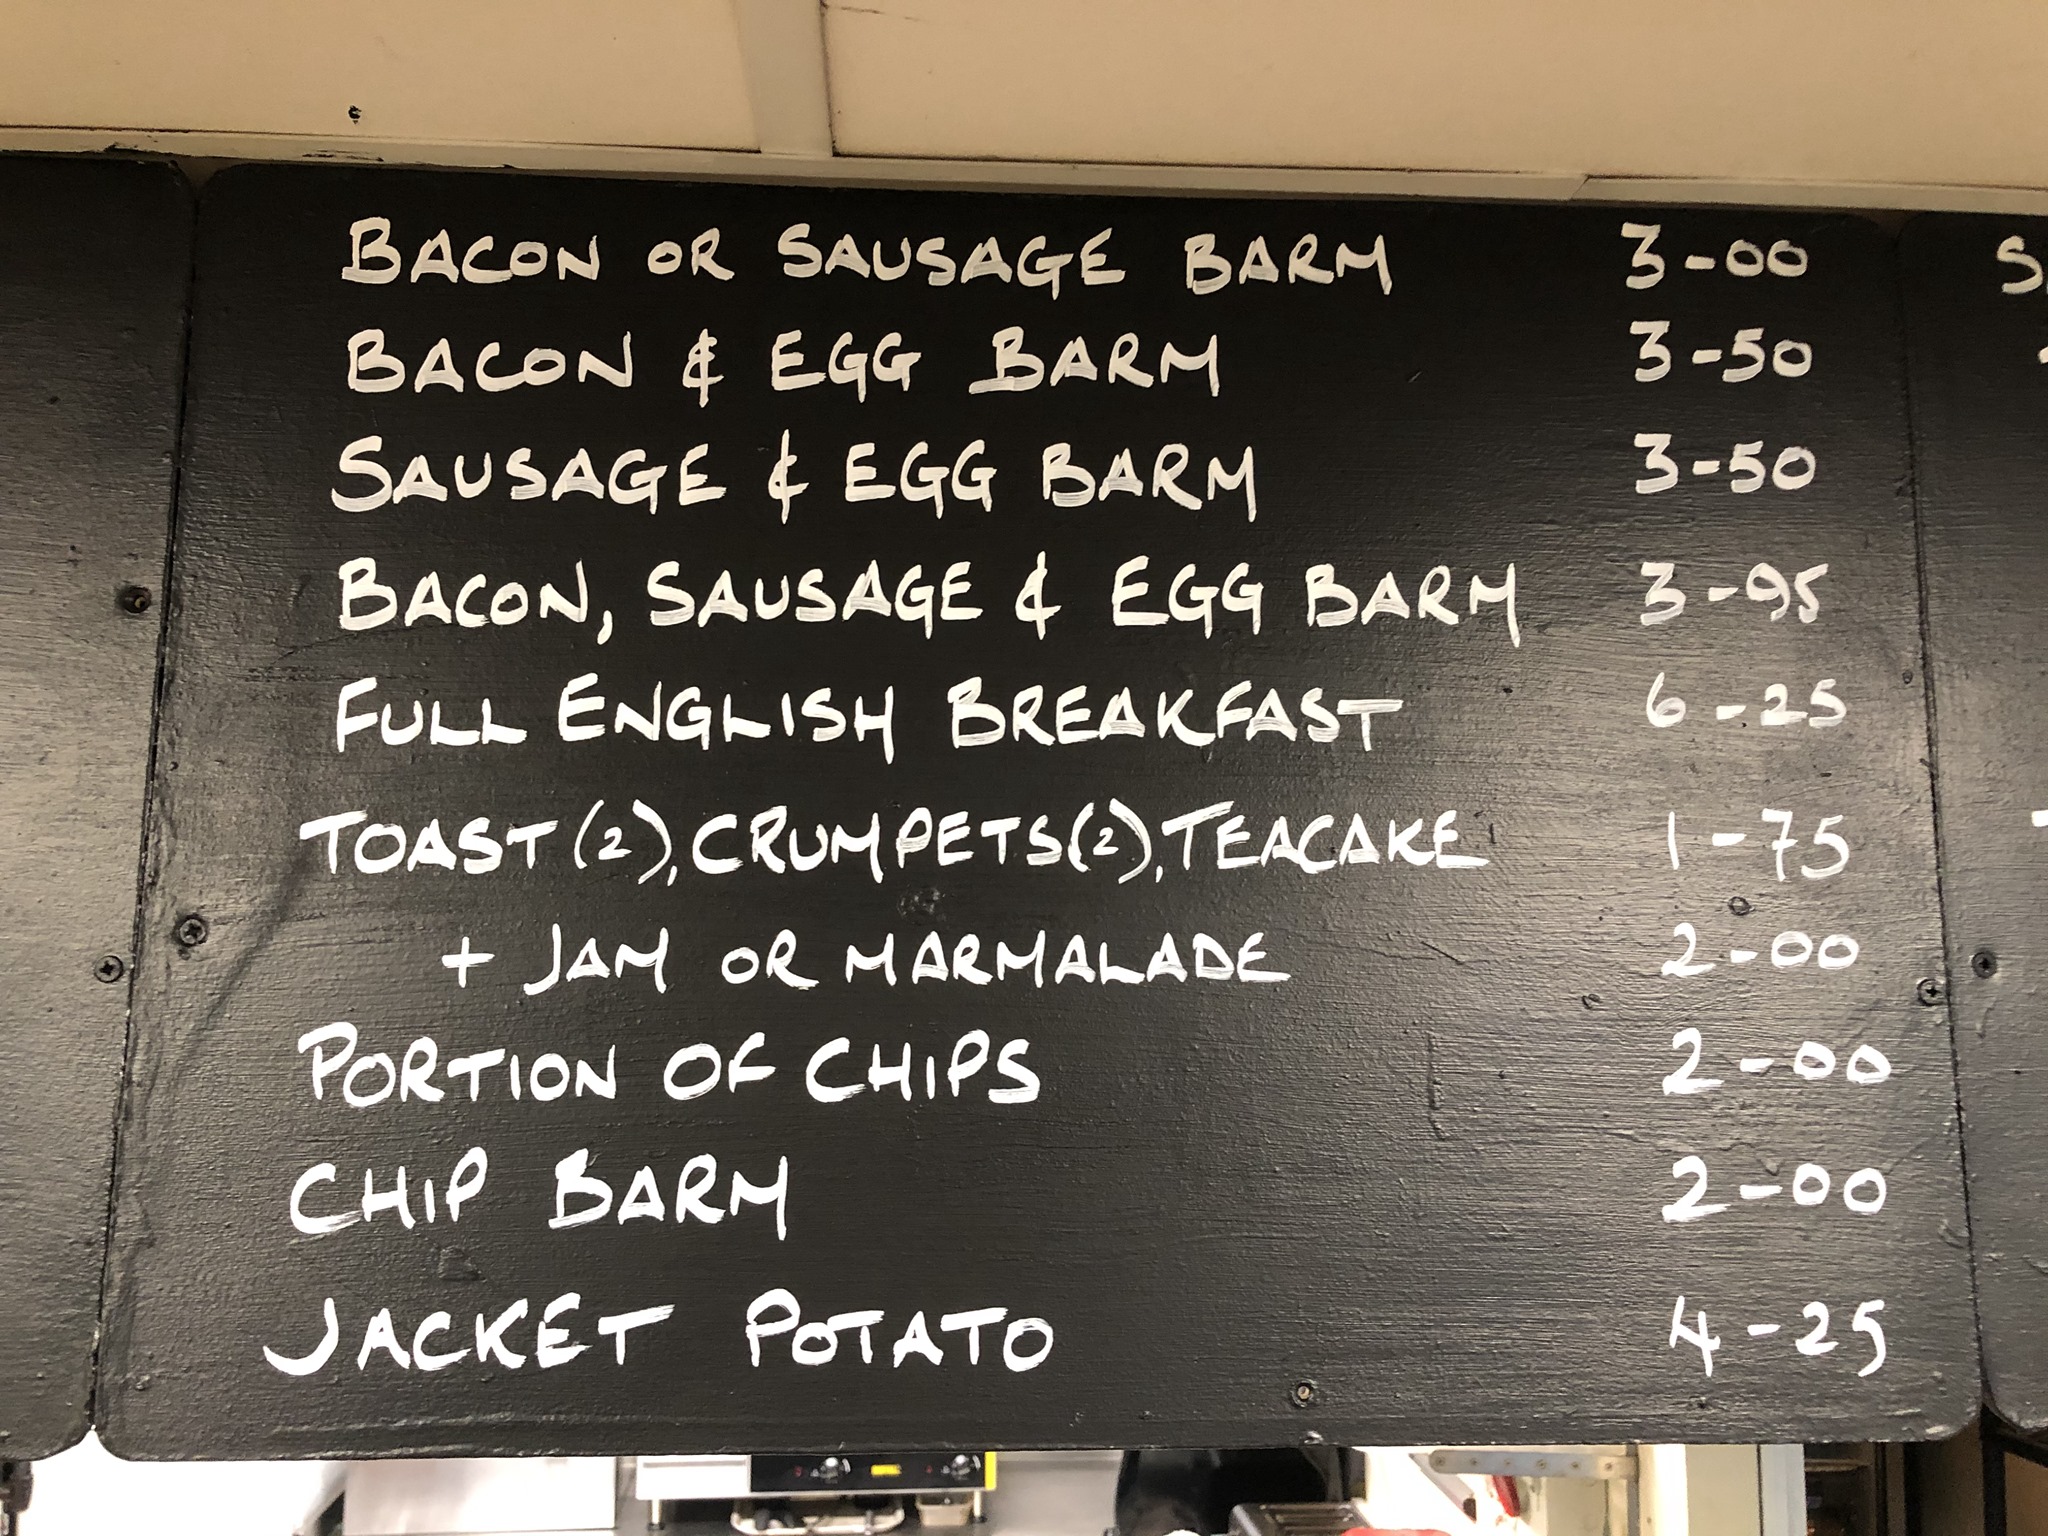 BACON OR SAUSAGE BARM 3-00
BACON & EGG BARM 3-50
SAUSAGE & EGG BARM 3-50
BACON, SAUSAGE & EGG BARM 3-95
FULL ENGLISH BREAKFAST 6-25
TOAST (2), CRUMPETS (2), TEACAKE 1-75
+ JAM OR MARMALADE 2-00
PORTION OF CHIPS 2-00
CHIP BARM 2-00
JACKET POTATO 4-25